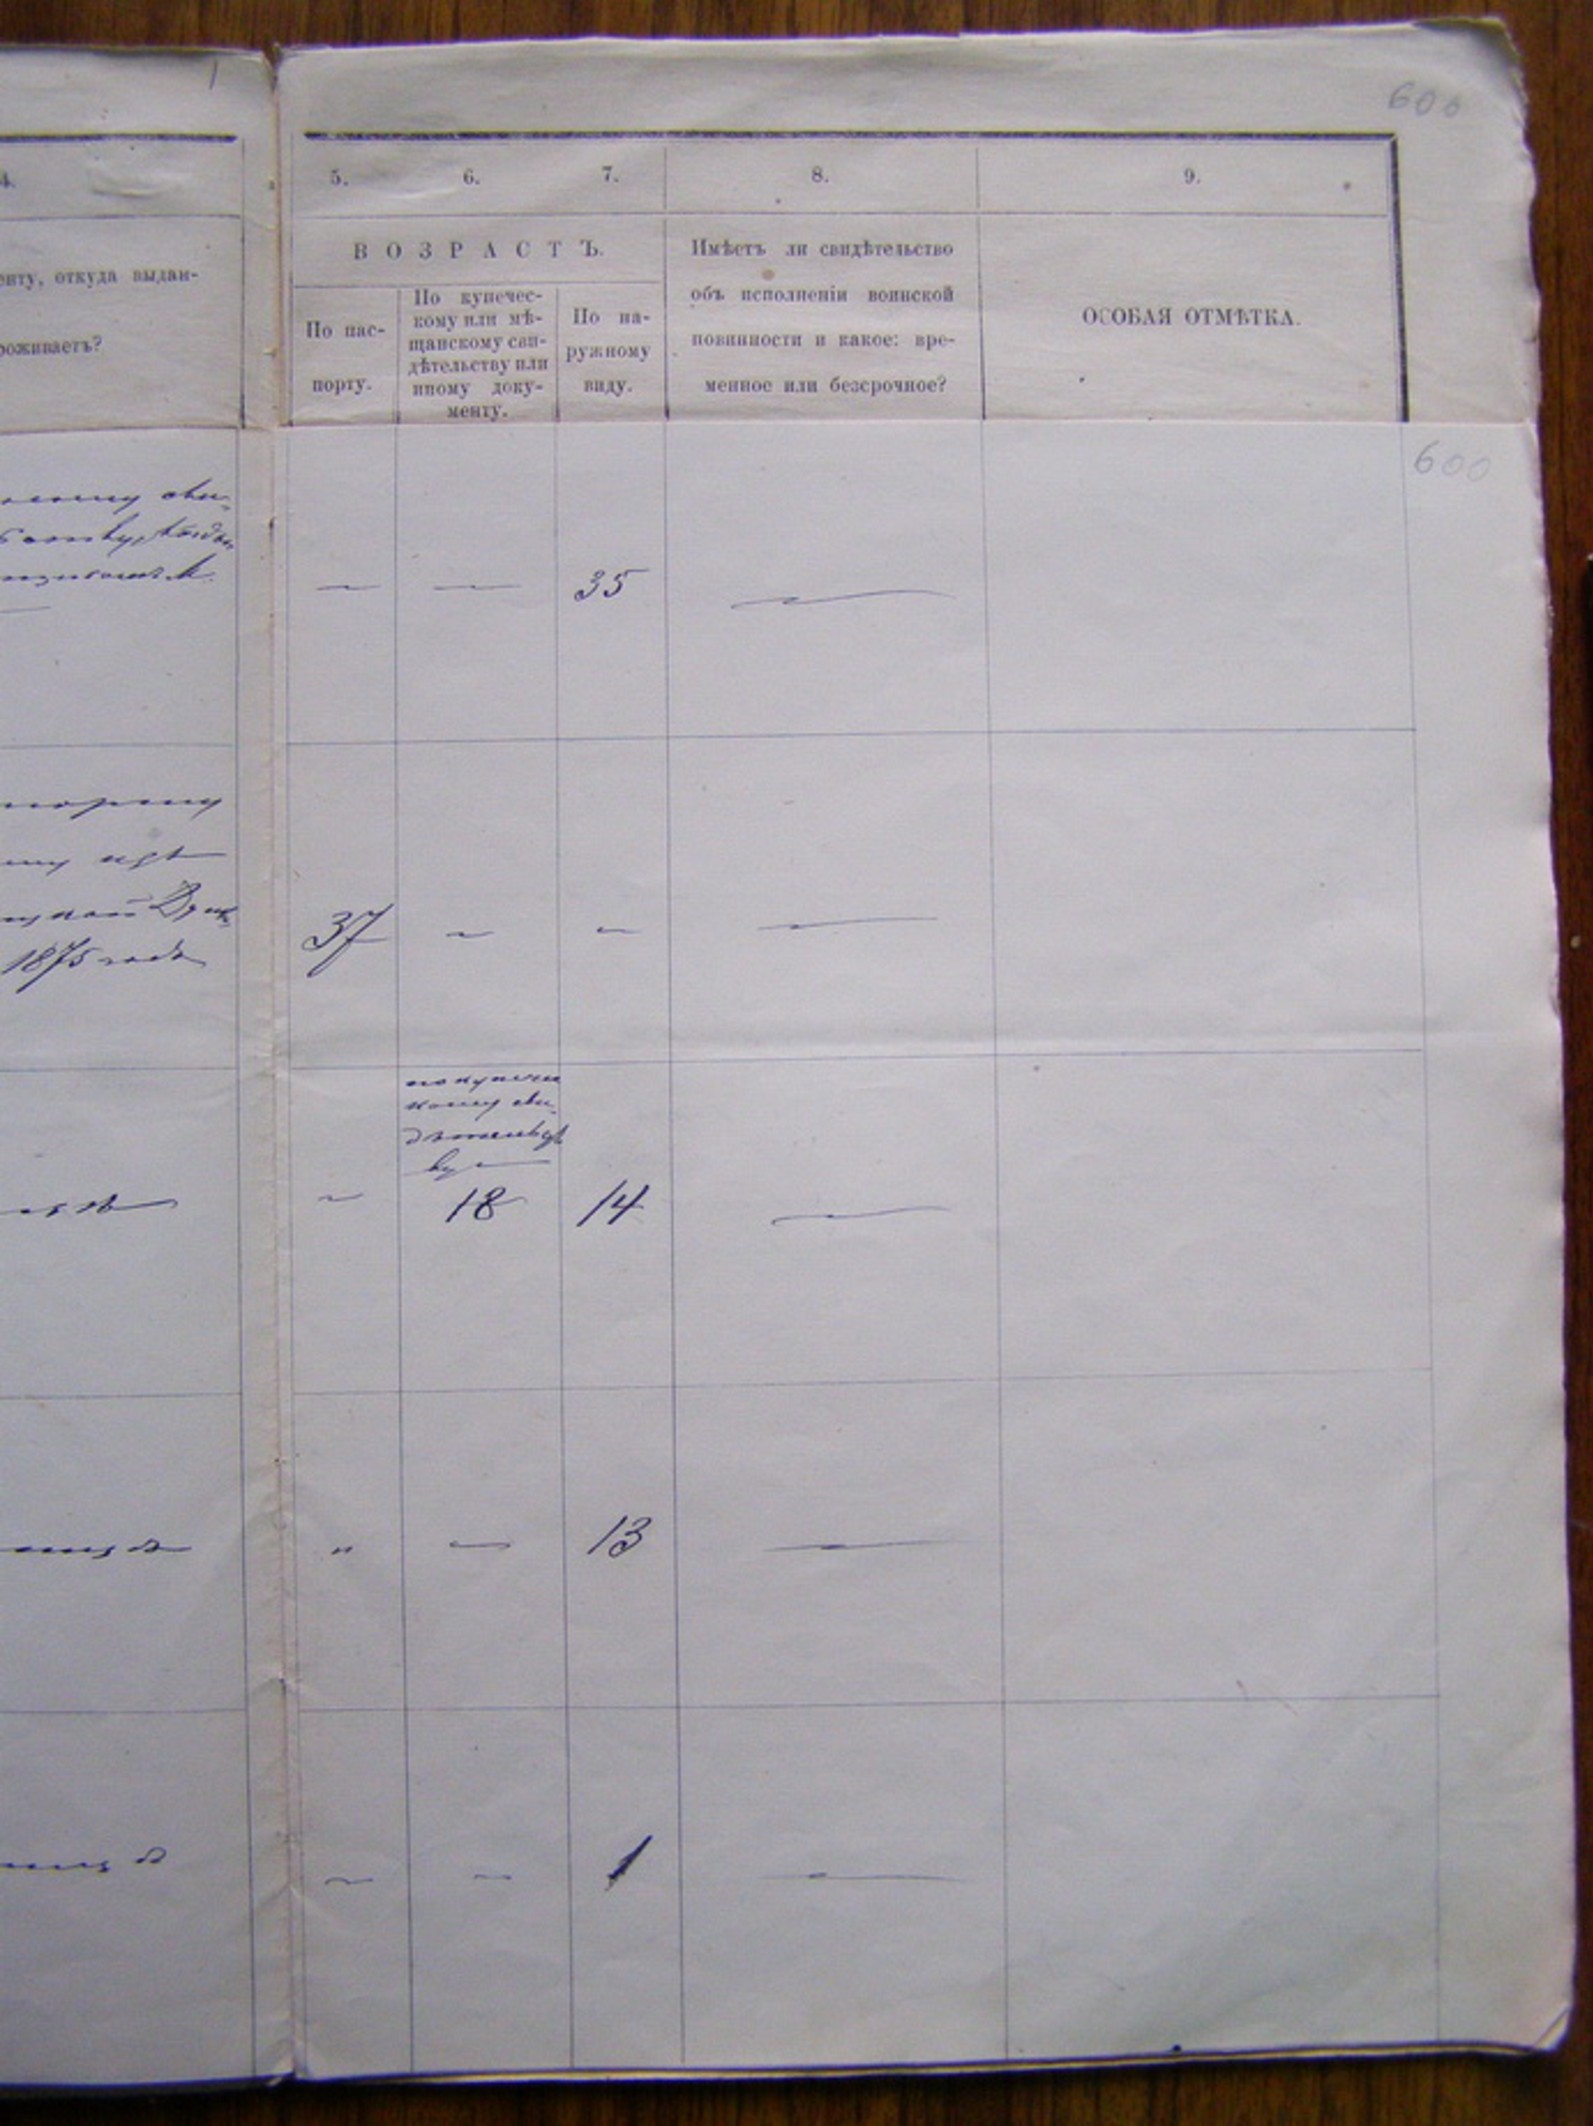 600
4.
5. 6. 7. 8. 9.
енту, откуда выдан-
роживаетъ?
ВОЗРАСТЪ.
По пас-
порту.
По купечес-
кому или мѣ-
щанскому сви-
дѣтельству или
иному доку-
менту.
По на-
ружному
виду.
Имѣетъ ли свидѣтельство
объ исполненіи воинской
повинности и какое: вре-
менное или безсрочное?
ОСОБАЯ ОТМѢТКА.
600
— — 35 —
1875 года
37 — — —
по купечес
кому сви-
дѣтельст
ву —
— 18 14 —
" — 13 —
— — 1 —